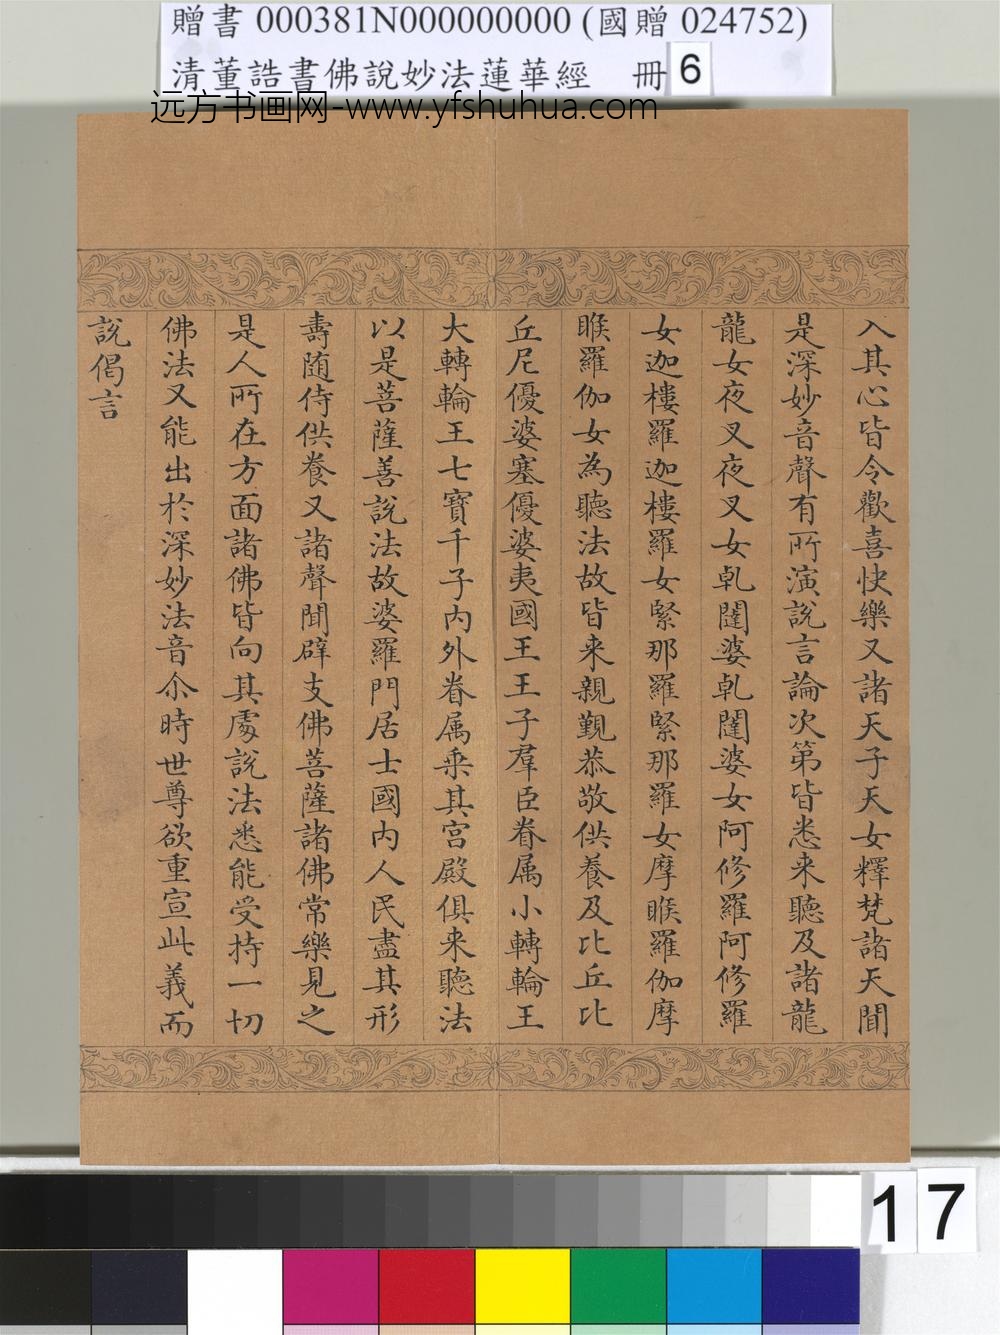 贈書 000381N000000000 (國贈 024752)
清董誥書佛說妙法蓮華經 冊 6
远方书画网-www.yfshuhua.com
入其心皆令歡喜快樂又諸天子天女釋梵諸天聞
是深妙音聲有所演說言論次第皆悉来聽及諸龍
龍女夜叉夜叉女乹闥婆乹闥婆女阿修羅阿修羅
女迦樓羅迦樓羅女緊那羅緊那羅女摩睺羅伽摩
睺羅伽女為聽法故皆来親覲恭敬供養及比丘比
丘尼優婆塞優婆夷國王王子羣臣眷属小轉輪王
大轉輪王七寶千子内外眷属乗其宮殿俱来聽法
以是菩薩善說法故婆羅門居士國内人民盡其形
壽随侍供養又諸聲聞辟支佛菩薩諸佛常樂見之
是人所在方面諸佛皆向其處說法悉能受持一切
佛法又能出於深妙法音尒時世尊欲重宣此義而
說偈言
17